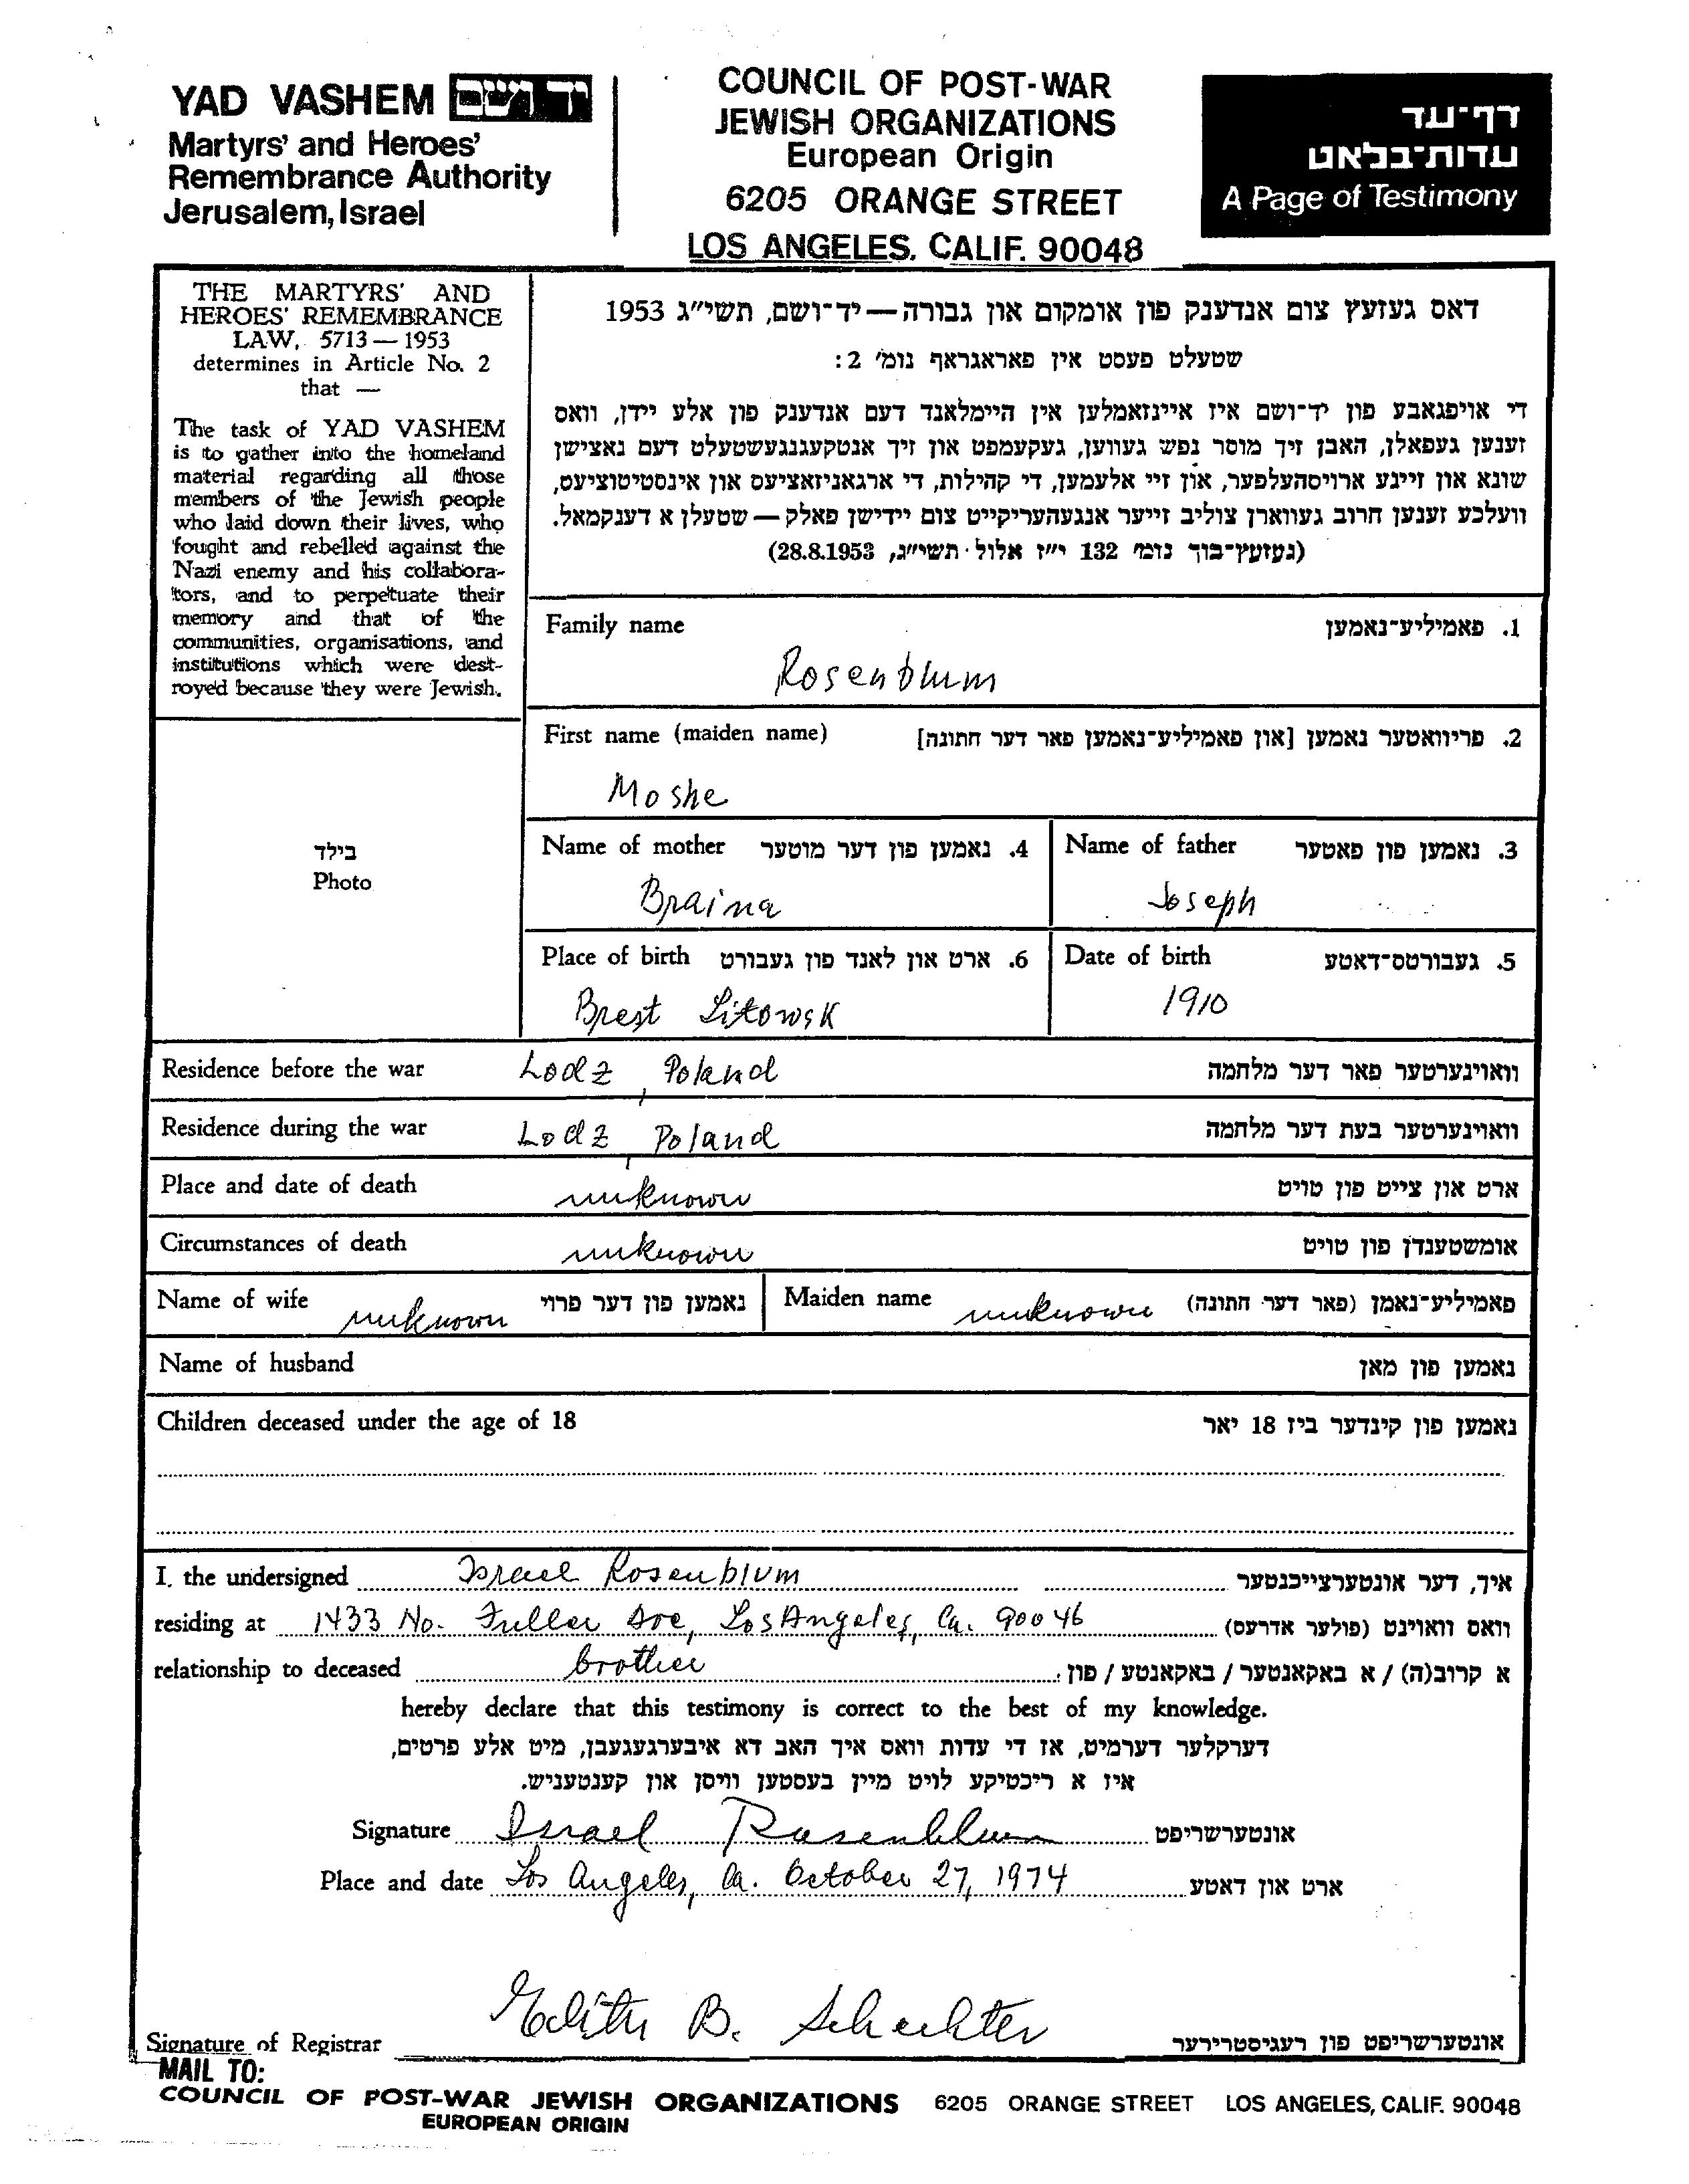 YAD VASHEM יד ושם
Martyrs' and Heroes'
Remembrance Authority
Jerusalem, Israel
COUNCIL OF POST-WAR
JEWISH ORGANIZATIONS
European Origin
6205 ORANGE STREET
LOS ANGELES, CALIF. 90048
דף-עד
עדות-בלאט
A Page of Testimony
THE MARTYRS' AND
HEROES' REMEMBRANCE
LAW, 5713 — 1953
determines in Article No. 2
that —
The task of YAD VASHEM
is to gather into the homeland
material regarding all those
members of the Jewish people
who laid down their lives, who
fought and rebelled against the
Nazi enemy and his collabora-
tors, and to perpetuate their
memory and that of the
communities, organisations, and
institutions which were dest-
royed because they were Jewish.
דאס געזעץ צום אנדענק פון אומקום און גבורה — יד-ושם, תשי"ג 1953
שטעלט פעסט אין פאראגראף נומ' 2:
די אויפגאבע פון יד-ושם איז איינזאמלען אין היימלאנד דעם אנדענק פון אלע יידן, וואס
זענען געפאלן, האבן זיך מוסר נפש געווען, געקעמפט און זיך אנטקעגנגעשטעלט דעם נאצישן
שונא און זיינע ארויסהעלפער, און זיי אלעמען, די קהילות, די ארגאניזאציעס און אינסטיטוציעס,
וועלכע זענען חרוב געווארן צוליב זייער אנגעהעריקייט צום יידישן פאלק — שטעלן א דענקמאל.
(געזעץ-בוך נומ' 132 י"ז אלול תשי"ג, 28.8.1953)
Family name 1. פאמיליע-נאמען
Rosenblum
First name (maiden name) 2. פריוואטער נאמען [און פאמיליע-נאמען פאר דער חתונה]
Moshe
בילד
Photo
Name of mother 4. נאמען פון דער מוטער Name of father 3. נאמען פון פאטער
Braina Joseph
Place of birth 6. ארט און לאנד פון געבורט Date of birth 5. געבורטס-דאטע
Brest Litowsk 1910
Residence before the war Lodz, Poland וואוינערטער פאר דער מלחמה
Residence during the war Lodz, Poland וואוינערטער בעת דער מלחמה
Place and date of death unknown ארט און צייט פון טויט
Circumstances of death unknown אומשטענדן פון טויט
Name of wife unknown נאמען פון דער פרוי Maiden name unknown פאמיליע-נאמן (פאר דער חתונה)
Name of husband נאמען פון מאן
Children deceased under the age of 18 נאמען פון קינדער ביז 18 יאר
I, the undersigned Israel Rosenblum איך, דער אונטערצייכנטער
residing at 1433 No. Fuller Ave, Los Angeles, Ca. 90046 וואס וואוינט (פולער אדרעס)
relationship to deceased brother א קרוב(ה) / א באקאנטער / באקאנטע / פון:
hereby declare that this testimony is correct to the best of my knowledge.
דערקלער דערמיט, אז די עדות וואס איך האב דא איבערגעגעבן, מיט אלע פרטים,
איז א ריכטיקע לויט מיין בעסטען וויסן און קענטעניש.
Signature Israel Rosenblum אונטערשריפט
Place and date Los Angeles, Ca. October 27, 1974 ארט און דאטע
Signature of Registrar Edith B. Schechter אונטערשריפט פון רעגיסטרירער
MAIL TO:
COUNCIL OF POST-WAR JEWISH ORGANIZATIONS 6205 ORANGE STREET LOS ANGELES, CALIF. 90048
EUROPEAN ORIGIN